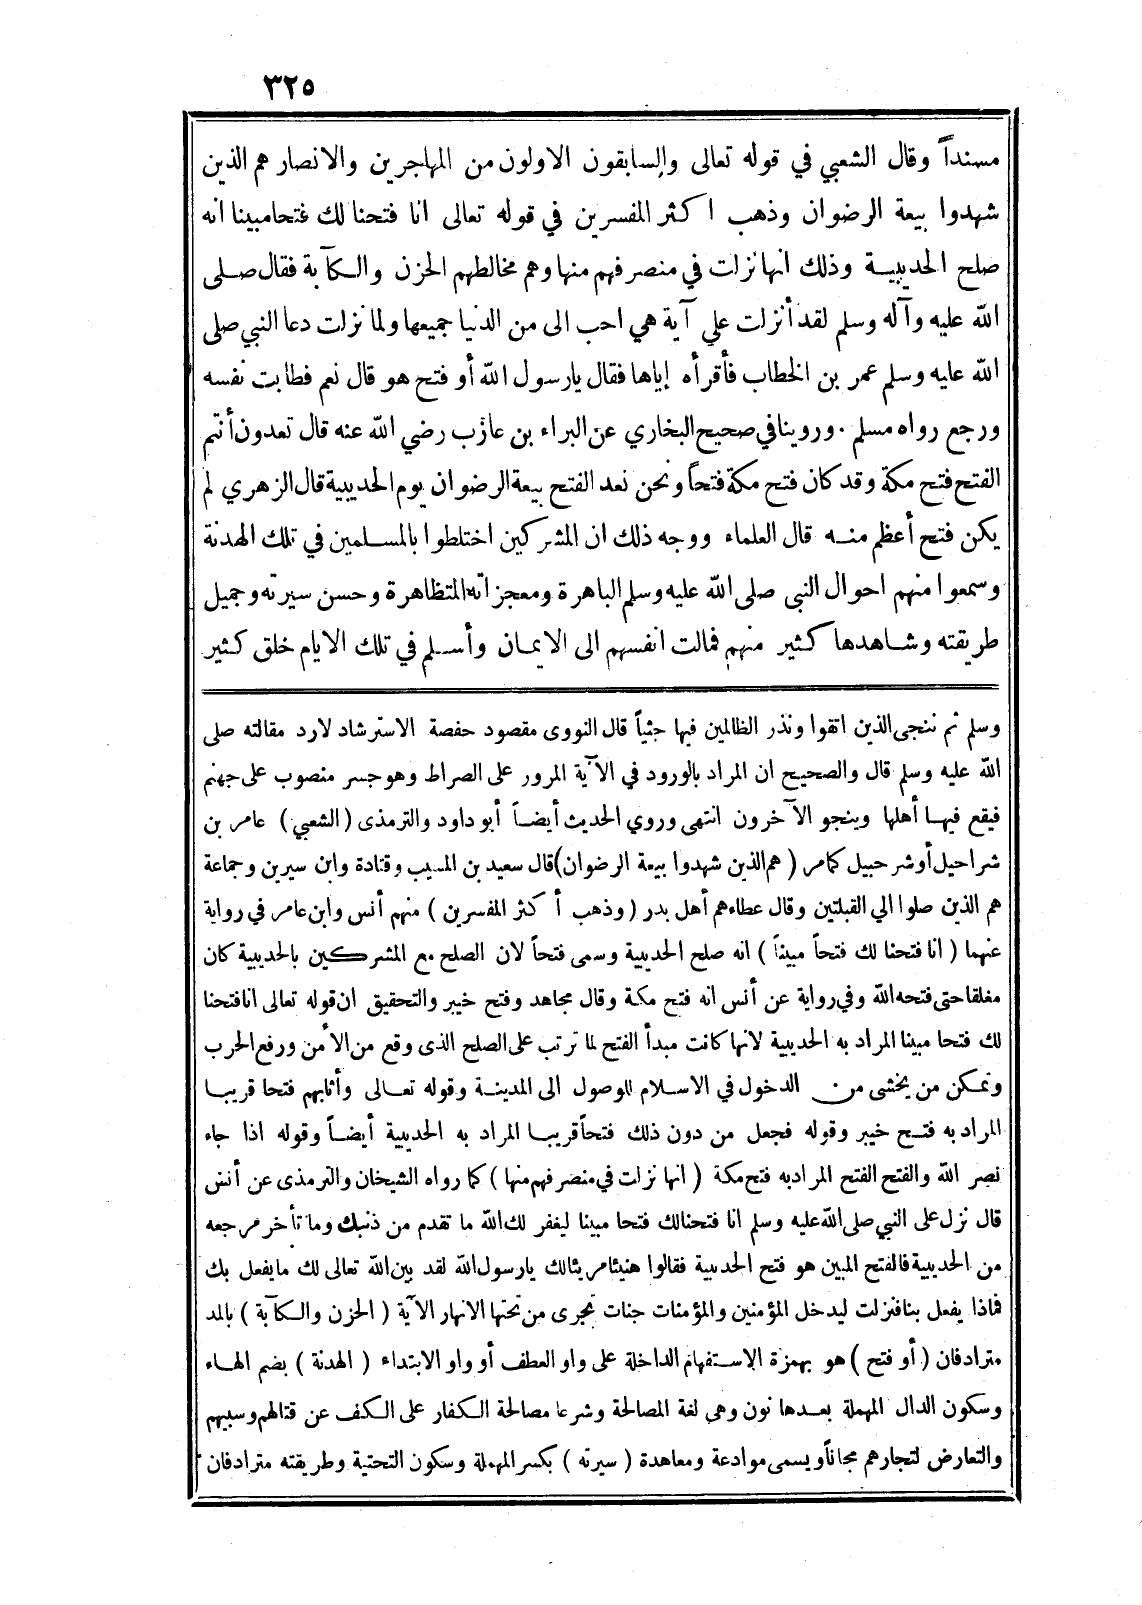 ٣٢٥
مسنداً وقال الشعبي في قوله تعالى والسابقون الاولون من المهاجرين والانصار هم الذين
شهدوا بيعة الرضوان وذهب اكثر المفسرين في قوله تعالى انا فتحنا لك فتحا مبينا انه
صلح الحديبية وذلك انها نزلت في منصرفهم منها وهم مخالطهم الحزن والكآبة فقال صلى
الله عليه وآله وسلم لقد أنزلت علي آية هي احب الى من الدنيا جميعها ولما نزلت دعا النبي صلى
الله عليه وسلم عمر بن الخطاب فأقرأه إياها فقال يارسول الله أو فتح هو قال نعم فطابت نفسه
ورجع رواه مسلم . وروينا في صحيح البخاري عن البراء بن عازب رضي الله عنه قال تعدون أنتم
الفتح فتح مكة وقد كان فتح مكة فتحاً ونحن نعد الفتح بيعة الرضوان يوم الحديبية قال الزهري لم
يكن فتح أعظم منه قال العلماء ووجه ذلك ان المشركين اختلطوا بالمسلمين في تلك الهدنة
وسمعوا منهم احوال النبي صلى الله عليه وسلم الباهرة ومعجزاته المتظاهرة وحسن سيرته وجميل
طريقته وشاهدها كثير منهم فمالت انفسهم الى الايمان وأسلم في تلك الايام خلق كثير
وسلم ثم ننجى الذين اتقوا ونذر الظالمين فيها جثياً قال النووى مقصود حفصة الاسترشاد لارد مقالته صلى
الله عليه وسلم قال والصحيح ان المراد بالورود في الآية المرور على الصراط وهو جسر منصوب على جهنم
فيقع فيها أهلها وينجو الآخرون انتهى وروي الحديث أيضاً أبو داود والترمذى (الشعبي) عامر بن
شراحيل أو شرحبيل كمامر (هم الذين شهدوا بيعة الرضوان) قال سعيد بن المسيب وقتادة وابن سيرين وجماعة
هم الذين صلوا الي القبلتين وقال عطاء هم أهل بدر (وذهب أكثر المفسرين) منهم أنس وابن عامر في رواية
عنهما (انا فتحنا لك فتحاً مبيناً) انه صلح الحديبية وسمى فتحاً لان الصلح مع المشركين بالحديبية كان
مغلقا حتى فتحه الله وفي رواية عن أنس انه فتح مكة وقال مجاهد وفتح خيبر والتحقيق ان قوله تعالى انا فتحنا
لك فتحا مبينا المراد به الحديبية لانها كانت مبدأ الفتح لما ترتب على الصلح الذى وقع من الأمن ورفع الحرب
وتمكن من يخشى من الدخول في الاسلام للوصول الى المدينة وقوله تعالى وأثابهم فتحا قريبا
المراد به فتح خيبر وقوله فجعل من دون ذلك فتحاً قريبا المراد به الحديبية أيضاً وقوله اذا جاء
نصر الله والفتح الفتح المراد به فتح مكة (انها نزلت في منصرفهم منها) كما رواه الشيخان والترمذى عن أنس
قال نزل على النبي صلى الله عليه وسلم انا فتحنا لك فتحا مبينا ليغفر لك الله ما تقدم من ذنبك وما تأخر مرجعه
من الحديبية فالفتح المبين هو فتح الحديبية فقالوا هنيئا مريئا لك يارسول الله لقد بين الله تعالى لك ما يفعل بك
فماذا يفعل بنا فنزلت ليدخل المؤمنين والمؤمنات جنات تجرى من تحتها الانهار الآية (الحزن والكآبة) بالمد
مترادفان (أو فتح) هو بهمزة الاستفهام الداخلة على واو العطف أو واو الابتداء (الهدنة) بضم الهاء
وسكون الدال المهملة بعدها نون وهي لغة المصالحة وشرعا مصالحة الكفار على الكف عن قتالهم وسبيهم
والتعارض لتجارهم مجاناً ويسمى موادعة ومعاهدة (سيرته) بكسر المهملة وسكون التحتية وطريقته مترادفان